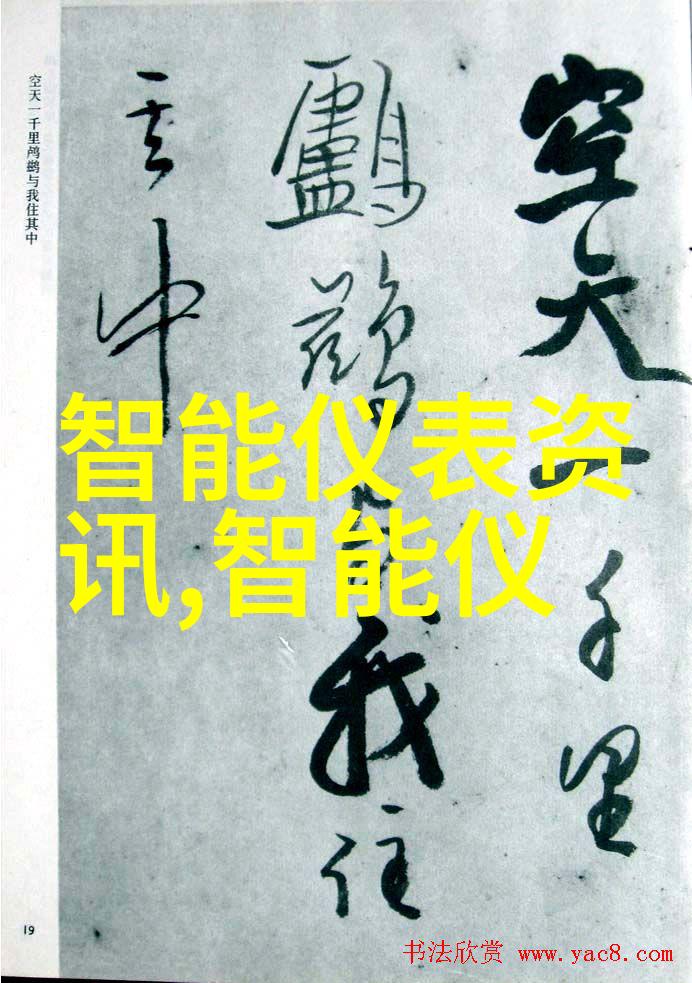 空天一千里
鸕鷀与我住
其中
空天一千里鸬鹚与我住其中
智能仪表资
讯,智能仪
19
书法欣赏 www.yac8.com